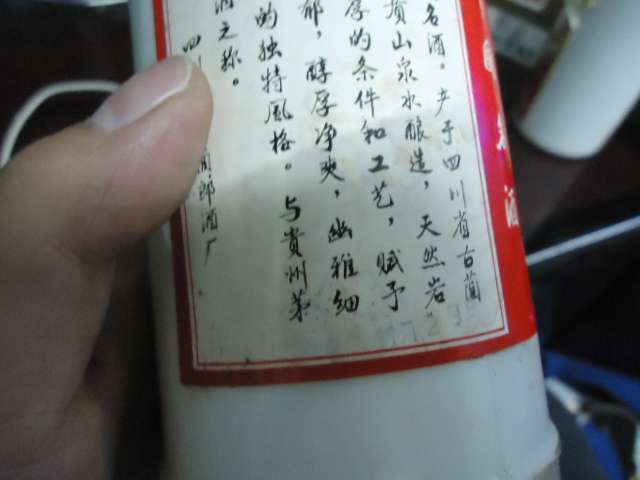 名酒
名酒。产于四川省古蔺
质山泉水酿造，天然岩
厚的条件和工艺，赋予
郁，醇厚净爽，幽雅细
的独特風格。与貴州茅
酒之称。
四川
蔺郎酒厂